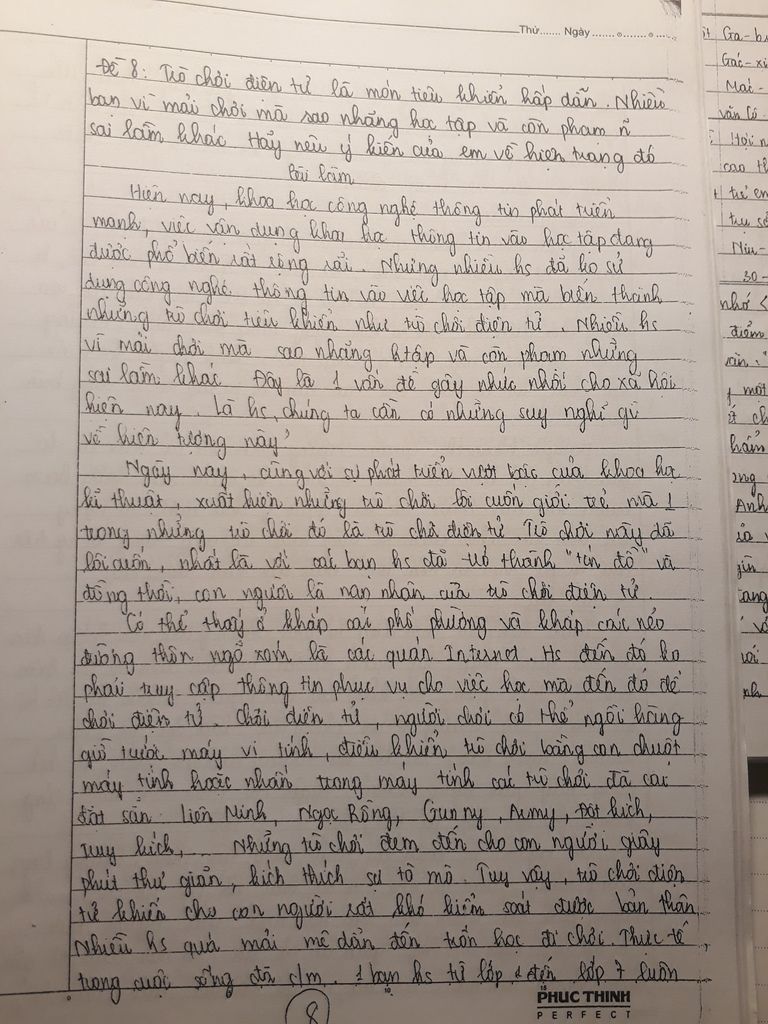 Thứ....... Ngày.......
Đề 8: Trò chơi điện tử là món tiêu khiển hấp dẫn. Nhiều
bạn vì mải chơi mà sao nhãng học tập và còn phạm
sai lầm khác Hãy nêu ý kiến của em về hiện trạng đó
Bài làm
Hiện nay, khoa học công nghệ thông tin phát triển
mạnh, việc vận dụng khoa học thông tin vào học tập đang
được phổ biến rất rộng rãi. Nhưng nhiều hs đã ko sử
dụng công nghệ thông tin vào việc học tập mà biến thành
những trò chơi tiêu khiển như trò chơi điện tử. Nhiều hs
vì mải chơi mà sao nhãng htập và còn phạm những
sai lầm khác Đây là 1 vấn đề gây nhức nhối cho xã hội
hiện nay. Là hs, chúng ta cần có những suy nghĩ gì
về hiện tượng này?
Ngày nay, cùng với sự phát triển vượt bậc của khoa học
kĩ thuật, xuất hiện những trò chơi lôi cuốn giới trẻ mà 1
trong những trò chơi đó là trò chơi điện tử. Trò chơi này đã
lôi cuốn, nhất là với các bạn hs đã trở thành "tín đồ" và
đồng thời, con người là nạn nhân của trò chơi điện tử.
Có thể thấy ở khắp các phố phường và khắp các nẻo
đường thôn ngõ xóm là các quán Internet. Hs đến đó ko
phải truy cập thông tin phục vụ cho việc học mà đến đó để
chơi điện tử. Chơi điện tử, người chơi có thể ngồi hàng
giờ trước máy vi tính, điều khiển trò chơi bằng con chuột
máy tính hoặc nhấn trong máy tính các trò chơi đã cài
đặt sẵn Liên Minh, Ngọc Rồng, Gunny, Army, Đột kích,
truy kích, ... Những trò chơi đem đến cho con người giây
phút thư giãn, kích thích sự tò mò. Tuy vậy, trò chơi điện
tử khiến cho con người rất khó kiểm soát được bản thân
Nhiều hs quá mải mê dẫn đến trốn học đi chơi. Thực tế
trong cuộc sống đã c/m. 1 bạn hs từ lớp 1 đến lớp 7 luôn
8
PHUC THINH
PERFECT